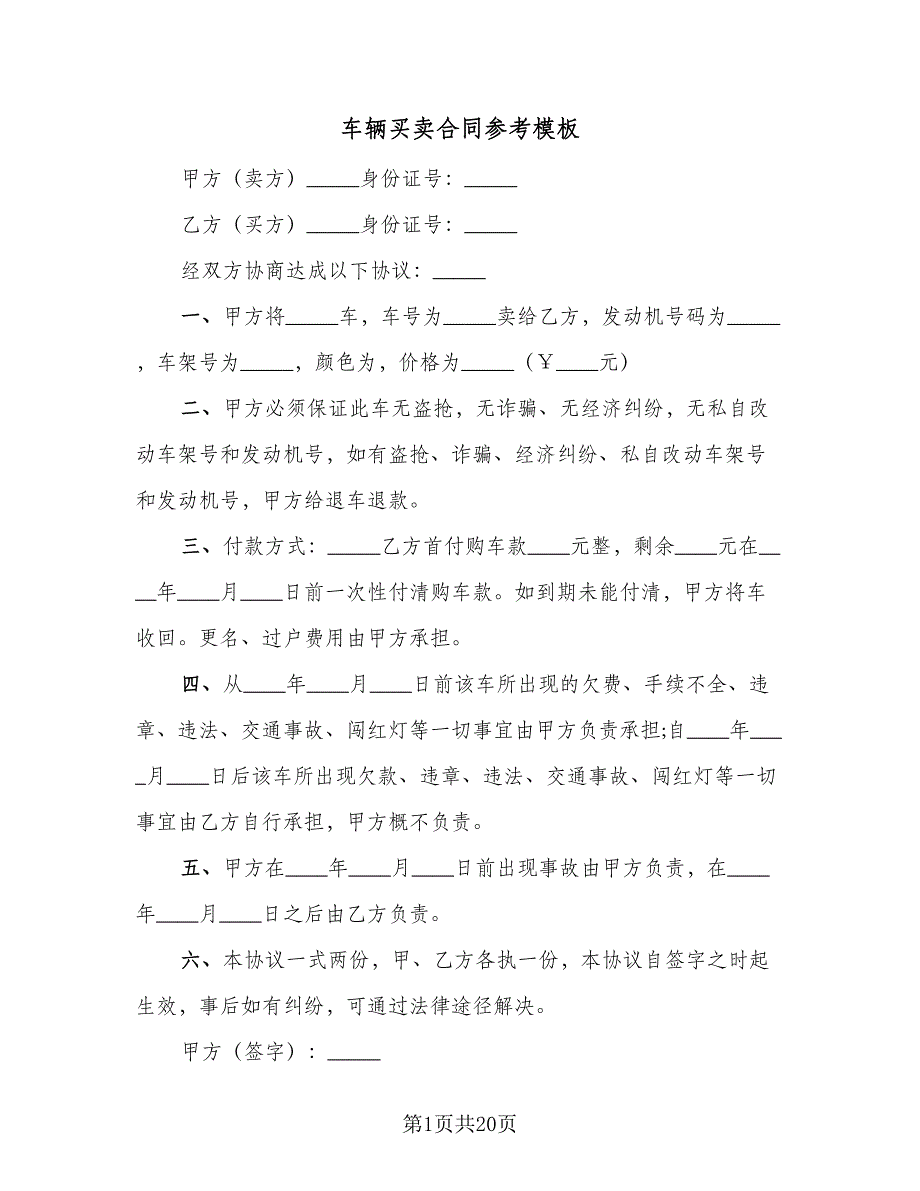 车辆买卖合同参考模板
甲方（卖方）_____身份证号：_____
乙方（买方）_____身份证号：_____
经双方协商达成以下协议：_____
一、甲方将_____车，车号为_____卖给乙方，发动机号码为_____
，车架号为_____，颜色为，价格为_____（￥____元）
二、甲方必须保证此车无盗抢，无诈骗、无经济纠纷，无私自改
动车架号和发动机号，如有盗抢、诈骗、经济纠纷、私自改动车架号
和发动机号，甲方给退车退款。
三、付款方式：_____乙方首付购车款____元整，剩余____元在__
__年____月____日前一次性付清购车款。如到期未能付清，甲方将车
收回。更名、过户费用由甲方承担。
四、从____年____月____日前该车所出现的欠费、手续不全、违
章、违法、交通事故、闯红灯等一切事宜由甲方负责承担;自____年___
_月____日后该车所出现欠款、违章、违法、交通事故、闯红灯等一切
事宜由乙方自行承担，甲方概不负责。
五、甲方在____年____月____日前出现事故由甲方负责，在____
年____月____日之后由乙方负责。
六、本协议一式两份，甲、乙方各执一份，本协议自签字之时起
生效，事后如有纠纷，可通过法律途径解决。
甲方（签字）：_____
第1页共20页